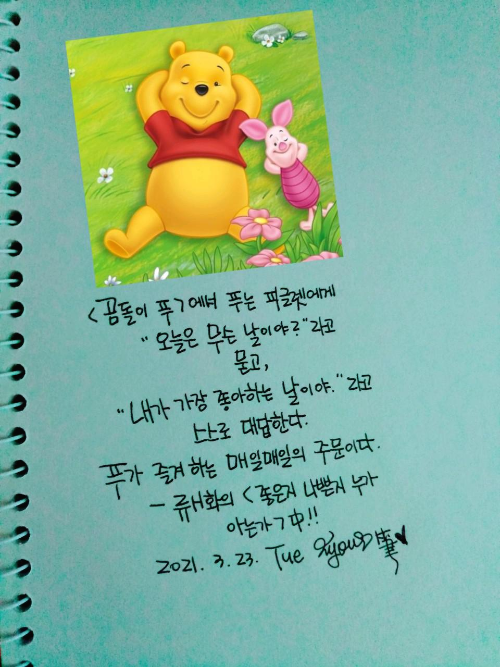 <곰돌이 푸>에서 푸는 피글렛에게
"오늘은 무슨 날이야?"라고
묻고,
"내가 가장 좋아하는 날이야."라고
스스로 대답한다.
푸가 즐겨 하는 매일매일의 주문이다.
- 류시화의 <좋은지 나쁜지 누가
아는가> 中!!
2021. 3. 23. Tue